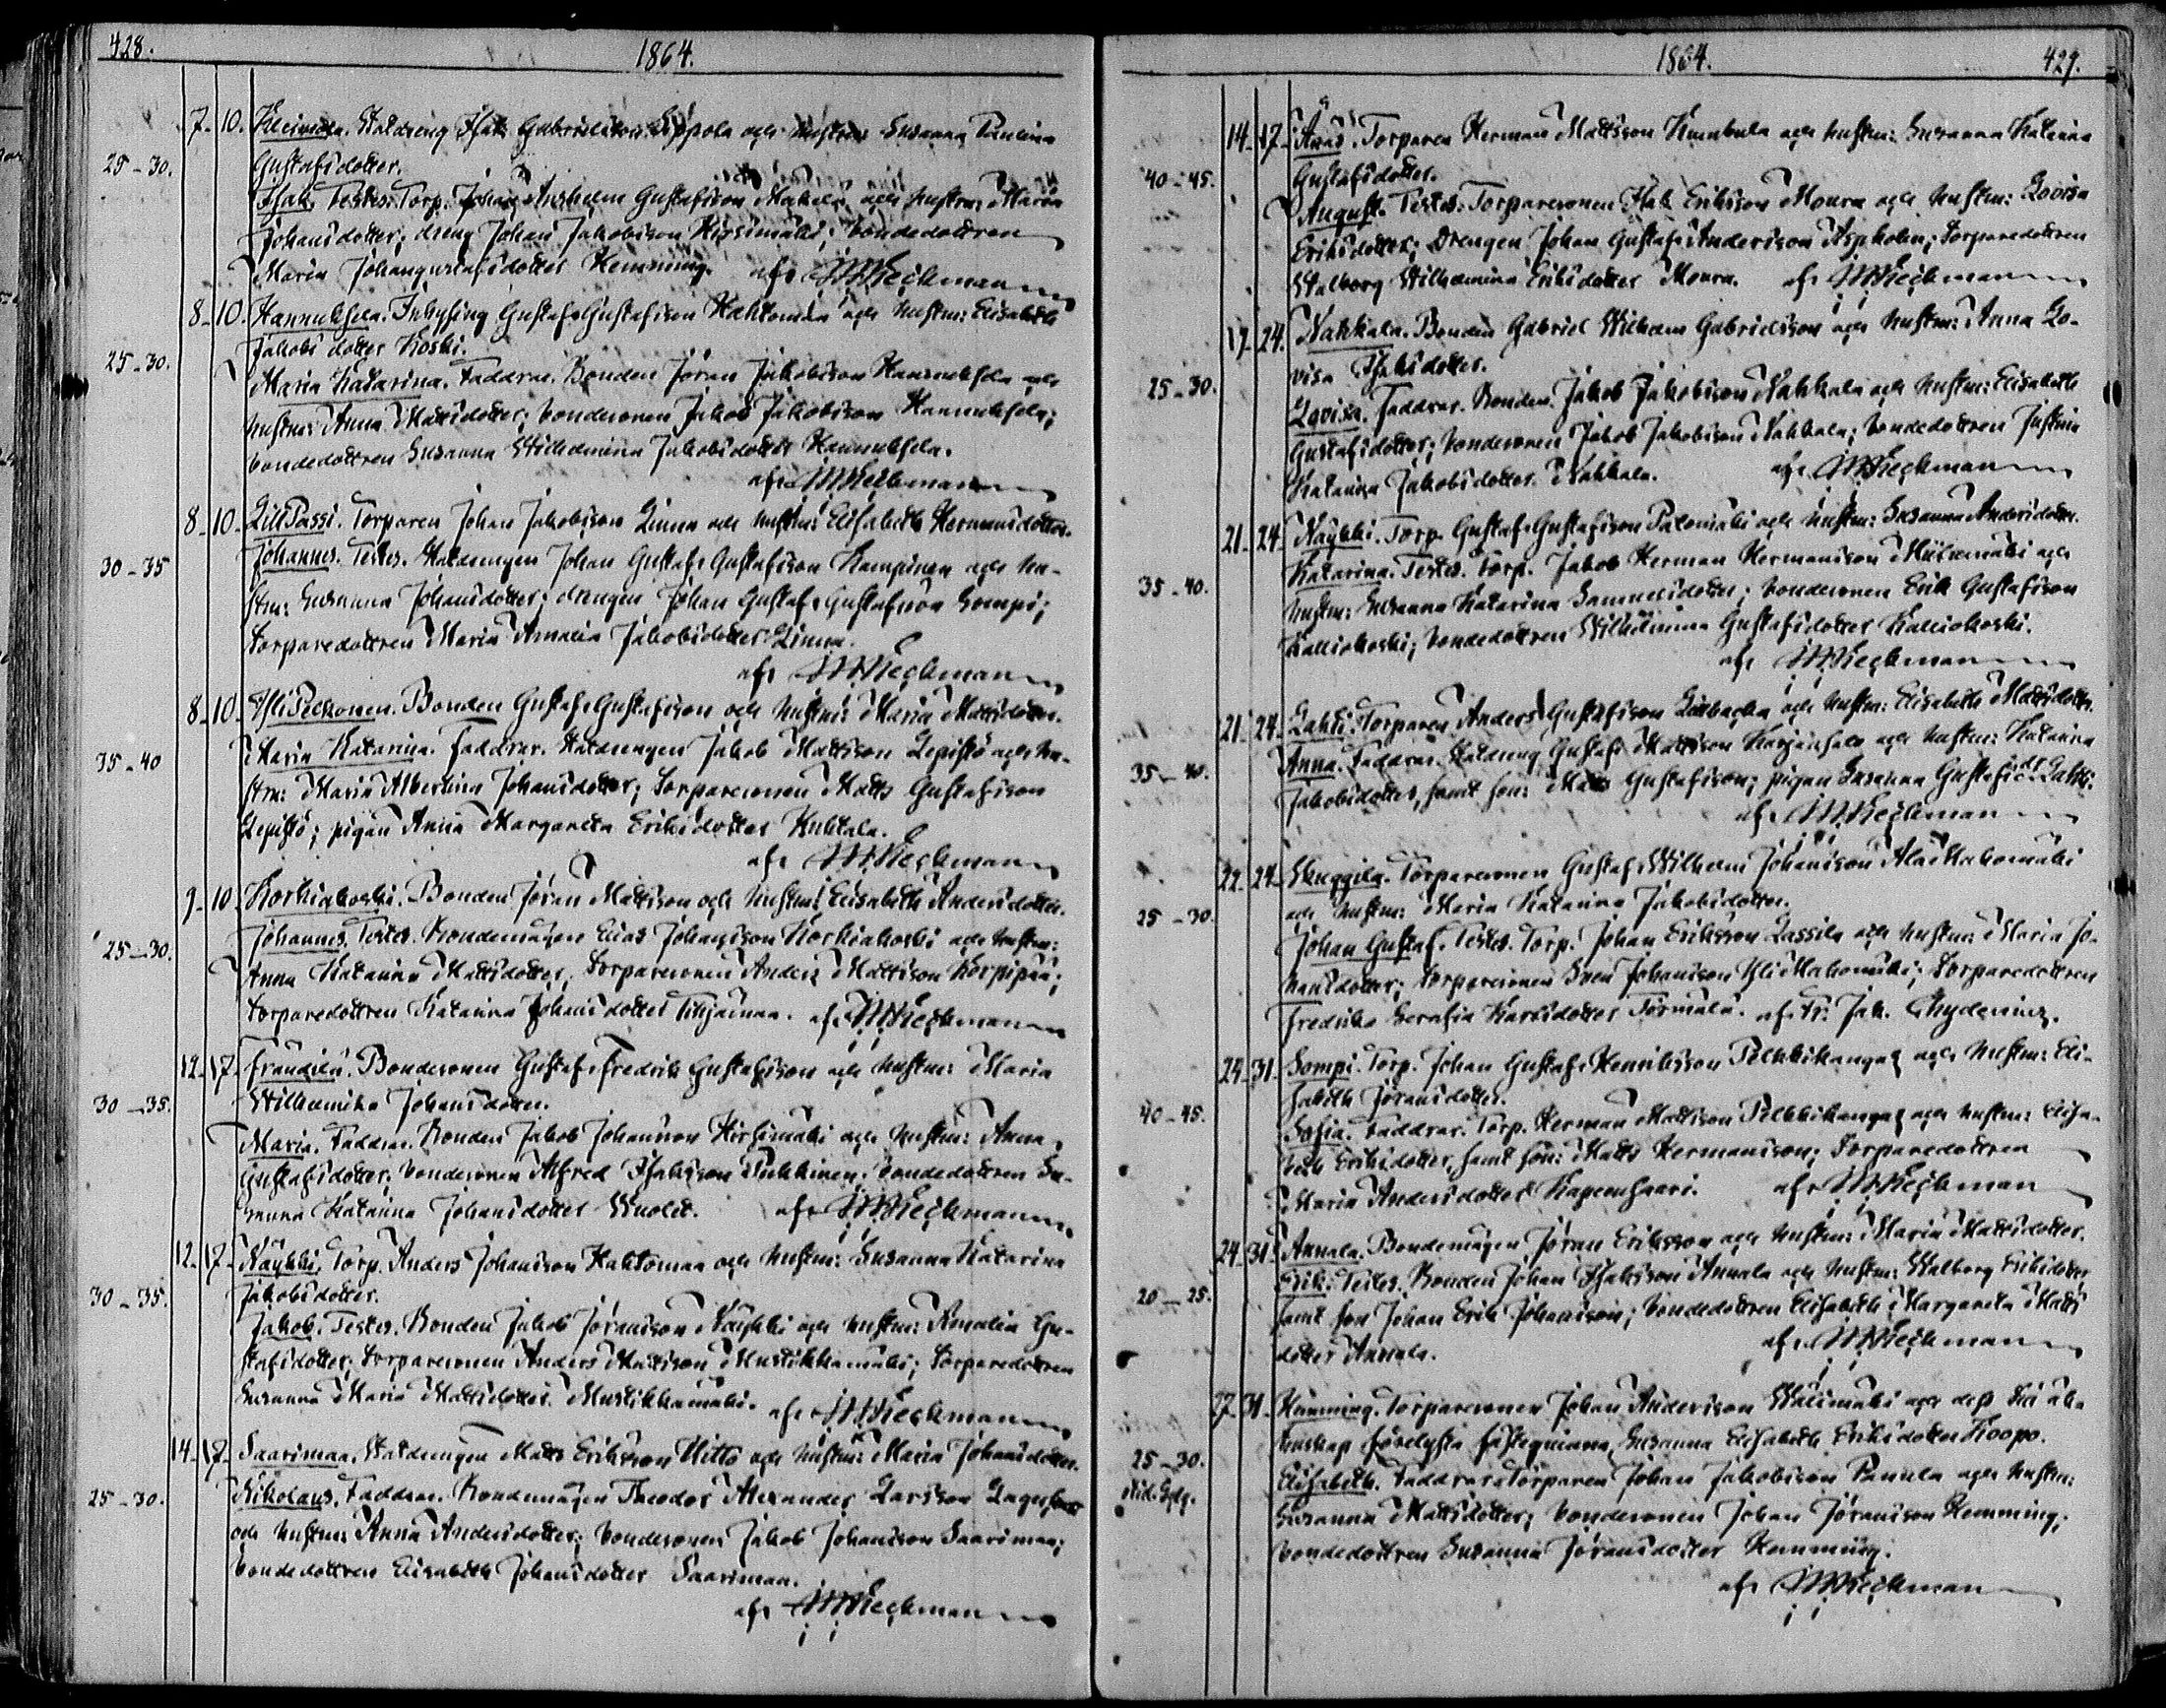 428. 1864.
7. 10. Stadreng Isak Gabrielsson Seppola och hustru Susanna Paulina
25-30. Gustafsdotter.
Isak. Testes. Torp. Johan Anshelm Gustafsson Makela och hustru: Maria
Johansdotter; dreng Johan Jakobsson Hirsimäki; bondedottren
Maria Johangustafsdotter Hemming. af: M. Heikman
8-10. Hannuksela. Inhysing Gustaf Gustafsson Kahtomaa och hustru: Elisabeth
25-30. Jakobsdotter Koski.
Maria Katarina. Faddrar. Bonden Jöran Jakobsson Hannuksela och
hustru: Anna Mattsdotter; bondesonen Jakob Jakobsson Hannuksela;
bondedottren Susanna Wilhelmina Jakobsdotter Hannuksela.
af:
8-10. LillPassi. Torparen Johan Jakobsson Linna och hustru: Elisabeth Hermansdotter.
30-35 Johannes. Testes. Statdrengen Johan Gustaf Gustafsson Kampinen och hu-
stru: Susanna Johansdotter; drengen Johan Gustaf Gustafsson Sompi;
torparedottren Maria Amalia Jakobsdotter Linna.
af:
8-10 YliPelkonen. Bonden Gustaf Gustafsson och hustru: Maria Mattsdotter.
35-40 Maria Katarina. Faddrar. Statdrengen Jakob Mattsson Lepistö och hu-
stru: Maria Albertina Johansdotter; torparesonen Matts Gustafsson
Lepistö; pigan Anna Margareta Eriksdotter Huhtala.
af:
9-10 Korkiakoski. Bonden Jöran Mattsson och hustru: Elisabeth Andersdotter.
25-30. Johannes. Testes. Bondemågen Elias Johansson Korkiakoski och hustru:
Anna Katarina Mattsdotter; torparesonen Anders Mattsson Korpipää;
torparedottren Katarina Johansdotter af:
12-17. Frantsila. Bondesonen Gustaf Fredrik Gustafsson och hustru: Maria
30-35. Wilhelmina Johansdotter.
Maria. Faddrar. Bonden Jakob Johansson Hirsimäki och hustru: Anna
Gustafsdotter; bondesonen Alfred Isaksson Pukkinen; bondedottren Su-
sanna Katarina Johansdotter Wuolet. af:
12-17. Näykki. Torp. Anders Johansson Kahtomaa och hustru: Susanna Katarina
30-35. Jakobsdotter.
Jakob. Testes. Bonden Jakob Jöransson Näykki och hustru: Amalia Gu-
stafsdotter; torparesonen Anders Mattsson Mustikkamäki; torparedottren
Susanna Maria Mattsdotter Mustikkamäki. af:
14-17. Saarimaa. Statdrengen Matts Eriksson Hitto och hustru: Maria Johansdotter.
25-30. Nikolaus. Faddrar. Bondemågen Theodor Alexander Larsson
och hustru: Anna Andersdotter; bondesonen Jakob Johansson Saarimaa;
bondedottren Elisabeth Johansdotter Saarimaa.
af:
1864. 429.
14-17. Torparen Herman Mattsson Kunnkula och hustru: Susanna Katarina
40-45. Gustafsdotter.
August. Testes. Torparesonen Isak Eriksson Moura och hustru: Lovisa
Eriksdotter; Drengen Johan Gustaf Andersson Aspholm; torparedottren
Walborg Wilhelmina Eriksdotter Moura. af:
19-24. Nahkala. Bonden Gabriel Wilhelm Gabrielsson och hustru: Anna Lo-
visa Isaksdotter.
25-30. Lovisa. Faddrar. Bonden Jakob Jakobsson Nahkala och hustru: Elisabeth
Gustafsdotter; bondesonen Jakob Jakobsson Nahkala; bondedottren Justina
Katarina Jakobsdotter Nahkala. af:
21-24. Näykki. Torp. Gustaf Gustafsson Palomäki och hustru: Susanna Andersdotter.
35-40. Katarina. Testes. Torp. Jakob Herman Hermansson och
hustru: Susanna Katarina Samuelsdotter; bondesonen Erik Gustafsson
Kalliokoski; bondedottren Wilhelmina Gustafsdotter Kalliokoski.
af:
21-24. Lahti. Torparen Anders Gustafsson och hustru: Elisabeth Mattsdotter.
35-40. Anna. Faddrar. Statdreng Gustaf Mattsson och hustru: Katarina
Jakobsdotter, samt son: Matts Gustafsson; pigan Susanna Gustafsdr Lahti.
af:
22-24. Skuggila. Torparesonen Gustaf Wilhelm Johansson AlaMakomäki
25-30. och hustru: Maria Katarina Jakobsdotter.
Johan Gustaf. Testes. Torp. Johan Eriksson Lassila och hustru: Maria Jo-
hansdotter; torparesonen Sven Johansson YliMakomäki; torparedottren
Fredrika Serafia Karlsdotter Törmälä. af: Fr. Jak. Chydenius.
24-31. Sompi. Torp. Johan Gustaf Henriksson Pelkkikangas och hustru: Eli-
sabeth Jöransdotter.
40-45. Sofia. Faddrar. Torp. Herman Mattsson Pelkkikangas och hustru: Elisa-
beth Eriksdotter, samt son: Matts Hermansson; torparedottren
Maria Andersdotter Kaperinsaari. af:
24-31. Annala. Bondemågen Jöran Eriksson och hustru: Maria Mattsdotter.
20-25. Erik. Testes. Bonden Johan Isaksson Annala och hustru: Walborg Eriksdotter
samt son Johan Erik Johansson; bondedottren Elisabeth Margareta Matts
dotter Annala. af:
27-31. Hemming. Torparesonen Johan Andersson Wälimäki och dess till äk-
tenskap förelysta fästeqvinna Susanna Elisabeth Eriksdotter Koopo.
25-30. Elisabeth. Faddrar: Torparen Johan Jakobsson Pannula och hustru:
Susanna Mattsdotter; bondesonen Johan Jöransson Hemming;
bondedottren Susanna Jöransdotter Hemming.
af: